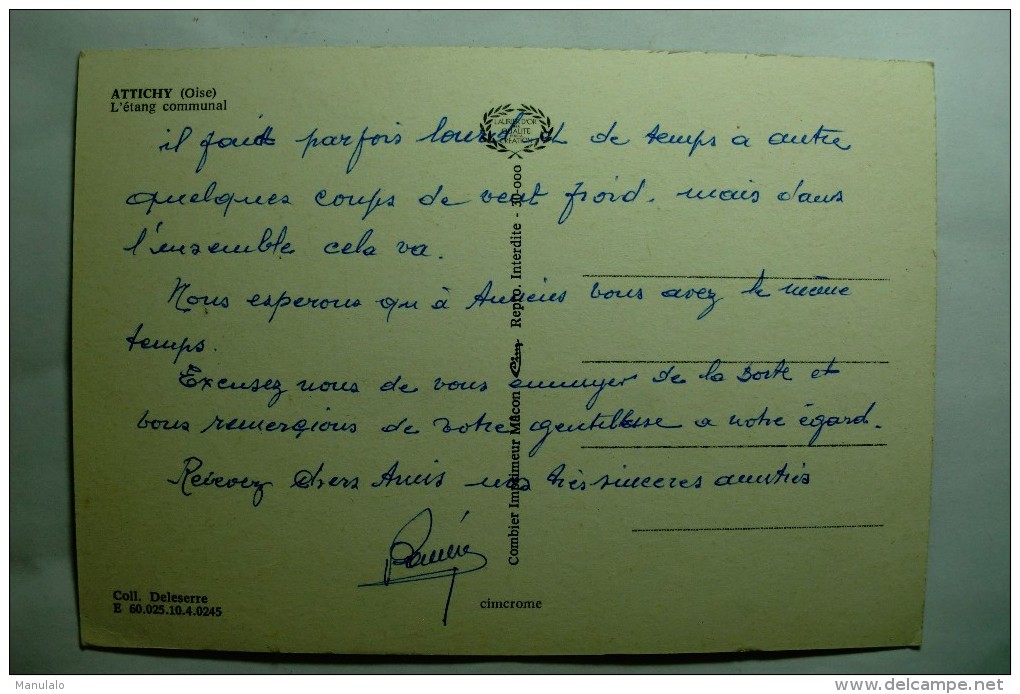 ATTICHY (Oise)
L'étang communal
LAURIER D'OR
QUALITE
CREATION
il fait parfois lourd et de temps à autre
quelques coups de vent froid. mais dans
l'ensemble cela va.
Nous esperons qu'à Amiens vous avez le même
temps.
Excusez nous de vous ennuyer de la sorte et
vous remergions de votre gentillesse a notre égard.
Recevez chers Amis nos très sinceres amitiés
Combier Imprimeur Mâcon Cim Repro. Interdite - 30-000
Coll. Deleserre
E 60.025.10.4.0245
cimcrome
Manulalo
delcampe.net